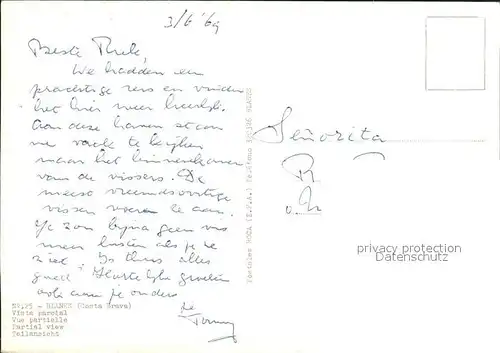 3/6 '69
Beste Riek,
We hadden een
prachtige reis en vinden
het hier weer heerlijk.
Aan deze haven staan
we vaak te kijken
naar het binnenkomen
van de vissers. De
meest vreemdsoortige
vissen voeren ze aan.
Je zou bijna geen vis
meer lusten als je ze
ziet. Is thuis alles
goed? Hartelijke groeten
ook aan je ouders
Señorita
R
v. N
privacy protection
Verwendungszweck
Postales ROZA (S.P.A.) Teléfono BLANES
- BLANES (Costa Brava)
Vista parcial
Vue partielle
Partial view
Teilansicht